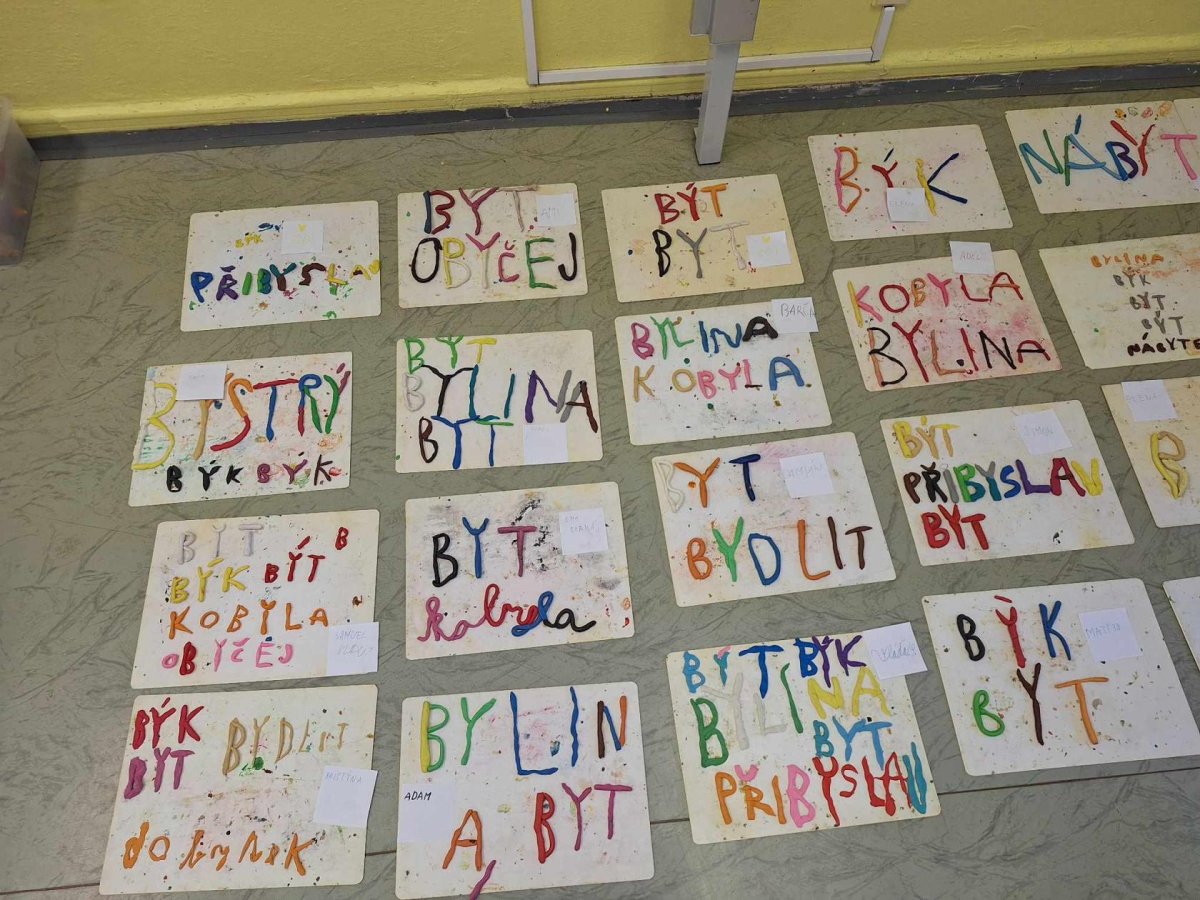 BÝK
PŘIBYSLAV
BYT
OBYČEJ
BÝT
BYT
BÝK
NÁBYT
BYSTRÝ
BÝK BÝK
BYT
BYLINA
BYT
BYLINA
KOBYLA
BARČA
KOBYLA
BYLINA
BYLINA
BÝK
BYT
BÝT
NÁBYTE
BÝT
BÝK BÝT B
KOBYLA
OBYČEJ
SAMUEL
BYT
kobyla
BYT
BYDLIT
BÝT
PŘIBYSLAV
BYT
B
BÝK
BYT
BYDLIT
dobytek
BYLIN
ADAM
A, BYT
BYT BÝK
BYLINA
BYT
PŘIBYSLAV
BÝK
BYT
MATĚJ